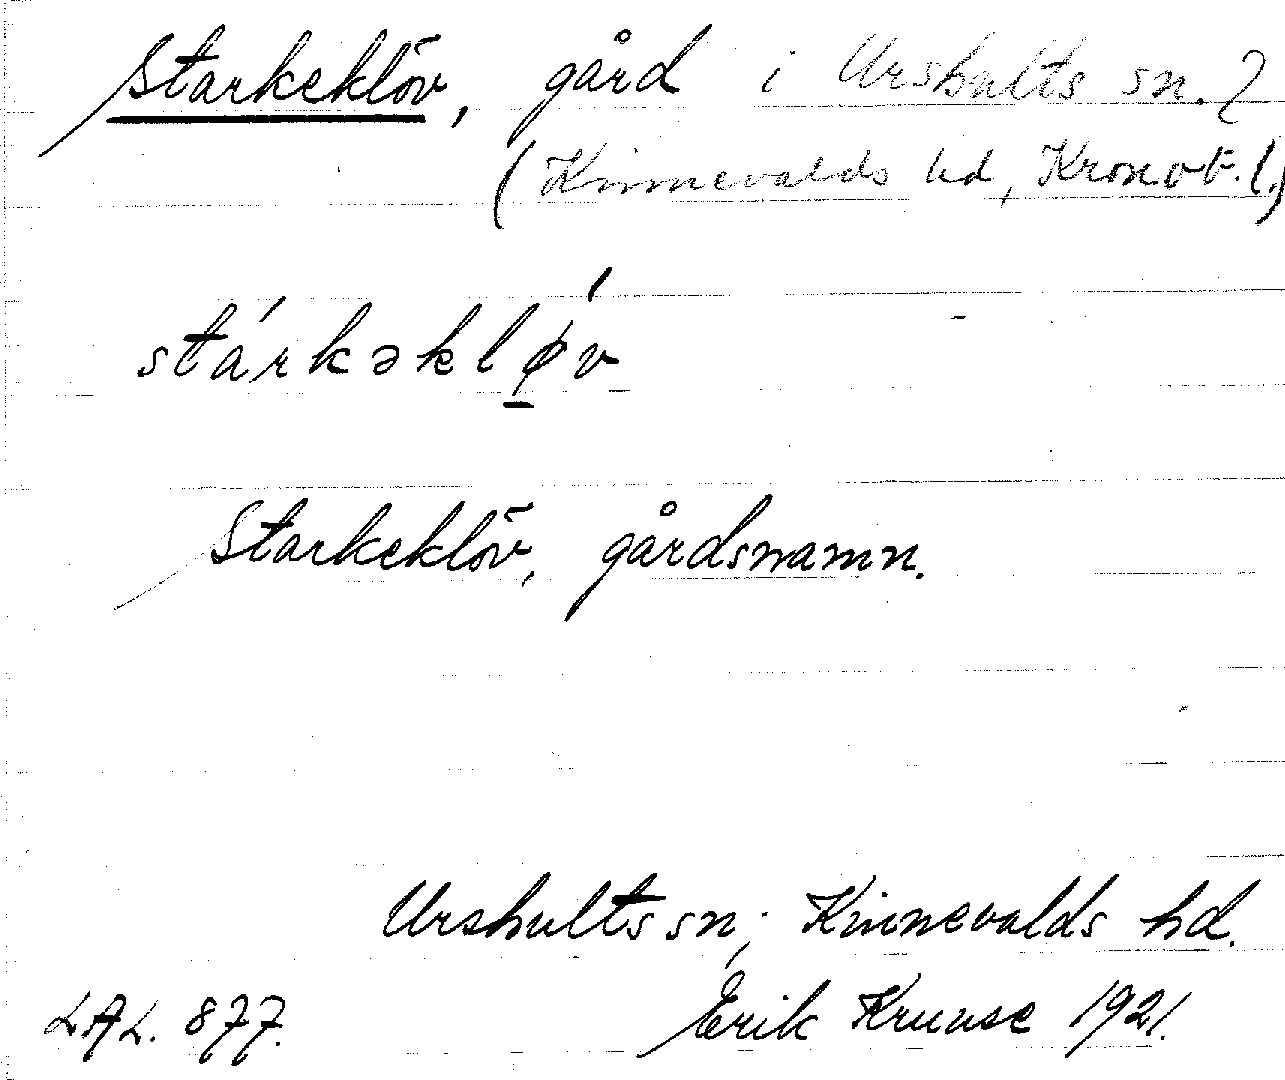 Starkeklöv, gård i Urshults sn.?
(Kinnevalds hd, Kronob. l.)
stárkəkløv́
Starkeklöv, gårdsnamn.
Urshults sn, Kinnevalds hd.
LAL. 877. Erik Kruuse 1921.